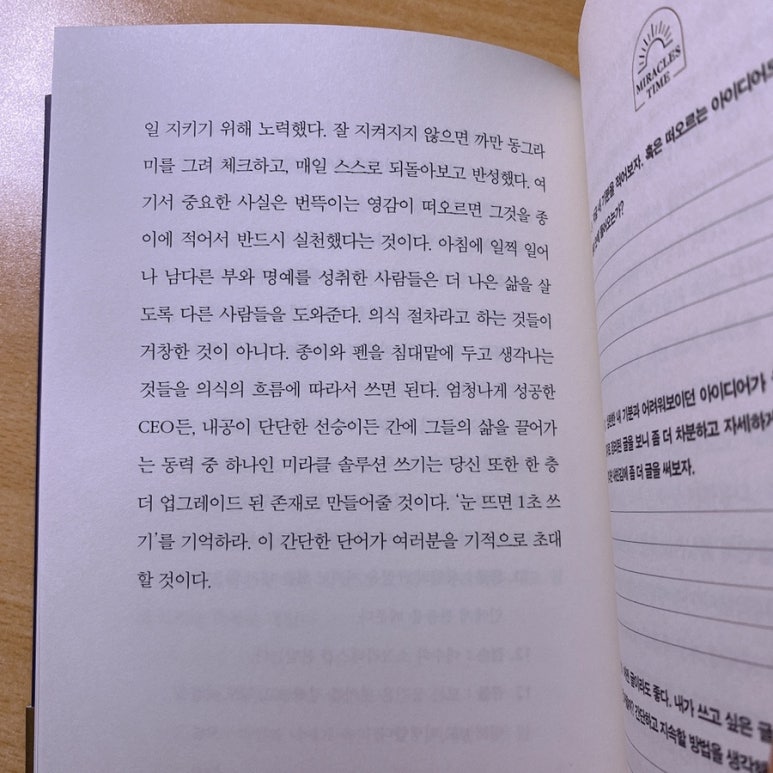 일 지키기 위해 노력했다. 잘 지켜지지 않으면 까만 동그라
미를 그려 체크하고, 매일 스스로 되돌아보고 반성했다. 여
기서 중요한 사실은 번뜩이는 영감이 떠오르면 그것을 종
이에 적어서 반드시 실천했다는 것이다. 아침에 일찍 일어
나 남다른 부와 명예를 성취한 사람들은 더 나은 삶을 살
도록 다른 사람들을 도와준다. 의식 절차라고 하는 것들이
거창한 것이 아니다. 종이와 펜을 침대맡에 두고 생각나는
것들을 의식의 흐름에 따라서 쓰면 된다. 엄청나게 성공한
CEO든, 내공이 단단한 선승이든 간에 그들의 삶을 끌어가
는 동력 중 하나인 미라클 솔루션 쓰기는 당신 또한 한 층
더 업그레이드 된 존재로 만들어줄 것이다. ‘눈 뜨면 1초 쓰
기’를 기억하라. 이 간단한 단어가 여러분을 기적으로 초대
할 것이다.
MIRACLES
TIME
기분을 적어보자. 혹은 떠오르는 아이디어
내 기분과 어려워보이던 아이디어가
글을 보니 좀 더 차분하고 자세하게
좀 더 글을 써보자.
글이라도 좋다. 내가 쓰고 싶은 글
간단하고 지속할 방법을 생각해